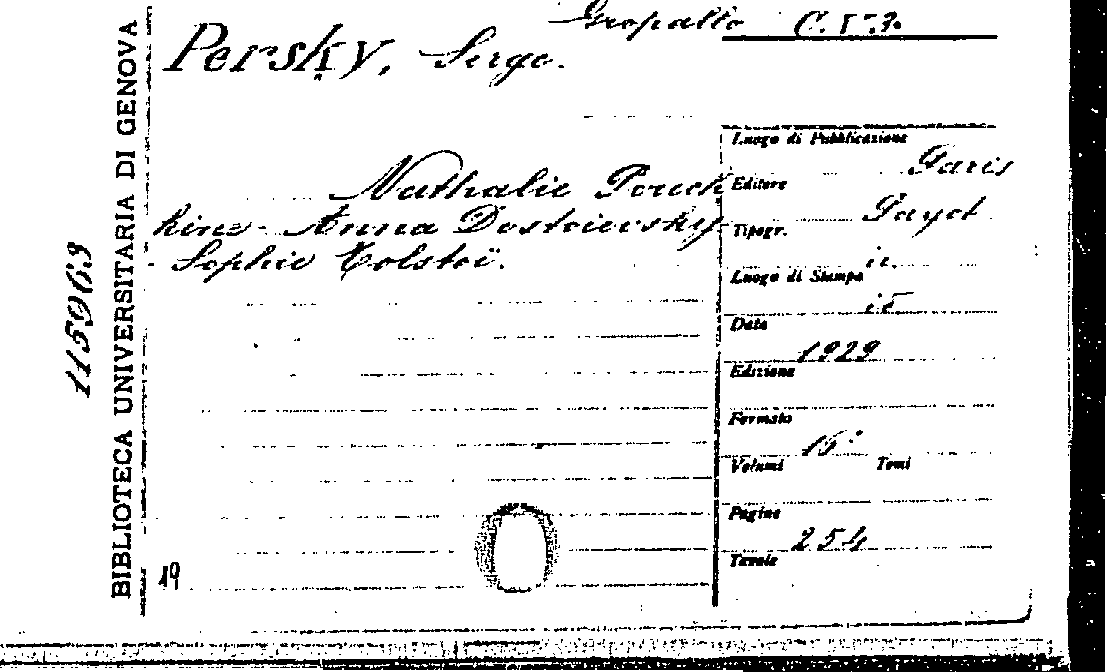 Gropallo C.I.3.
Persky, Serge.
Nathalie Pouch
kine - Anna Dostoievsky
- Sophie Tolstoï.
Luogo di Pubblicazione
Paris
Editore
Payot
Tipogr.
id.
Luogo di Stampa
id
Data
1929
Edizione
Formato
16°
Volumi Tomi
Pagine
254
Tavole
19
115963
BIBLIOTECA UNIVERSITARIA DI GENOVA